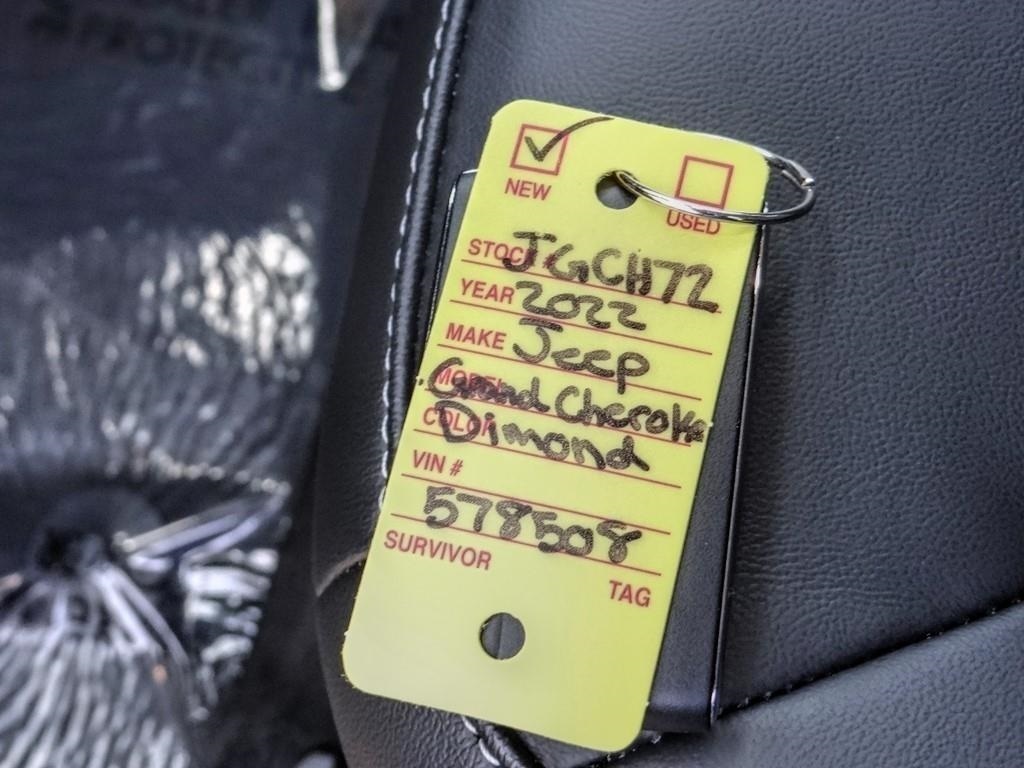 NEW USED
STOCK # JGCH72
YEAR 2022
MAKE Jeep
MODEL Grand Cheroke
COLOR Dimond
VIN #
578508
SURVIVOR TAG